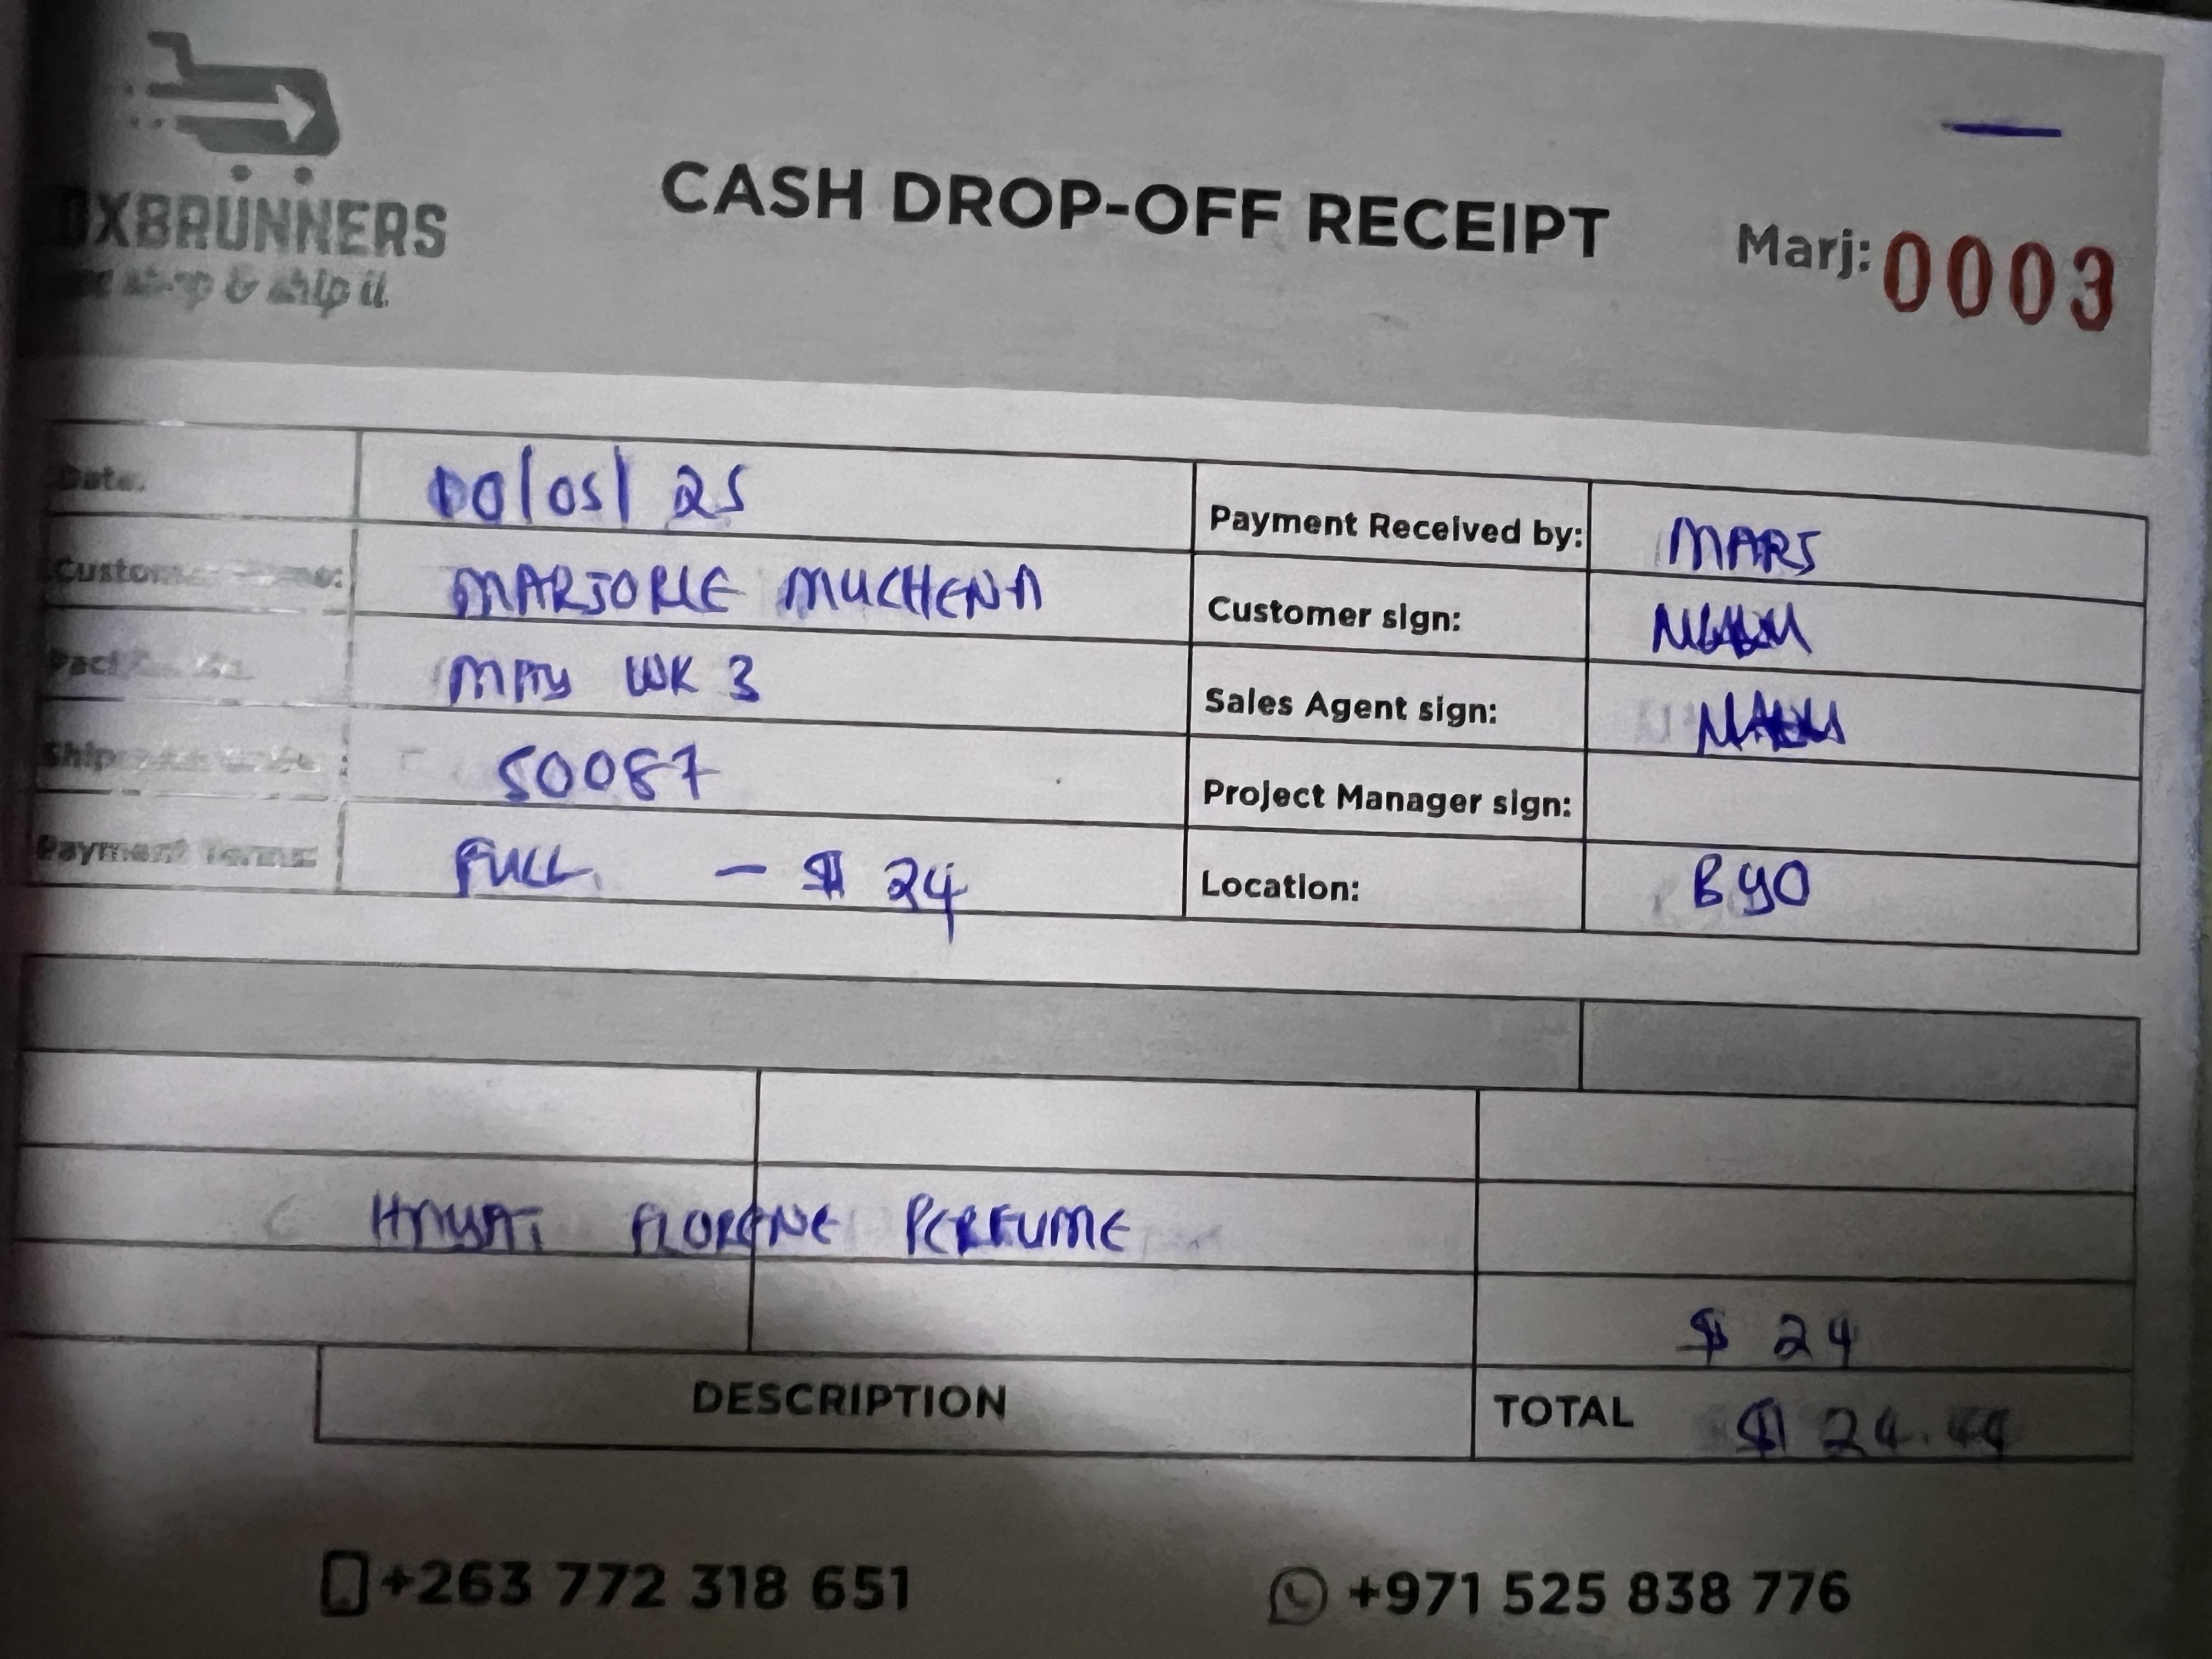 DXBRUNNERS
& ship it
CASH DROP-OFF RECEIPT
Marj: 0003
Date: 00/05/ 25
Payment Received by: MARJ
Customer Name: MARJORIE MUCHENA
Customer sign:
MAY WK 3
Sales Agent sign:
50087
Project Manager sign:
Payment Terms: FULL - $ 24
Location: BYO
HAYAT FLORENE PERFUME
$ 24
DESCRIPTION
TOTAL $ 24
+263 772 318 651
+971 525 838 776